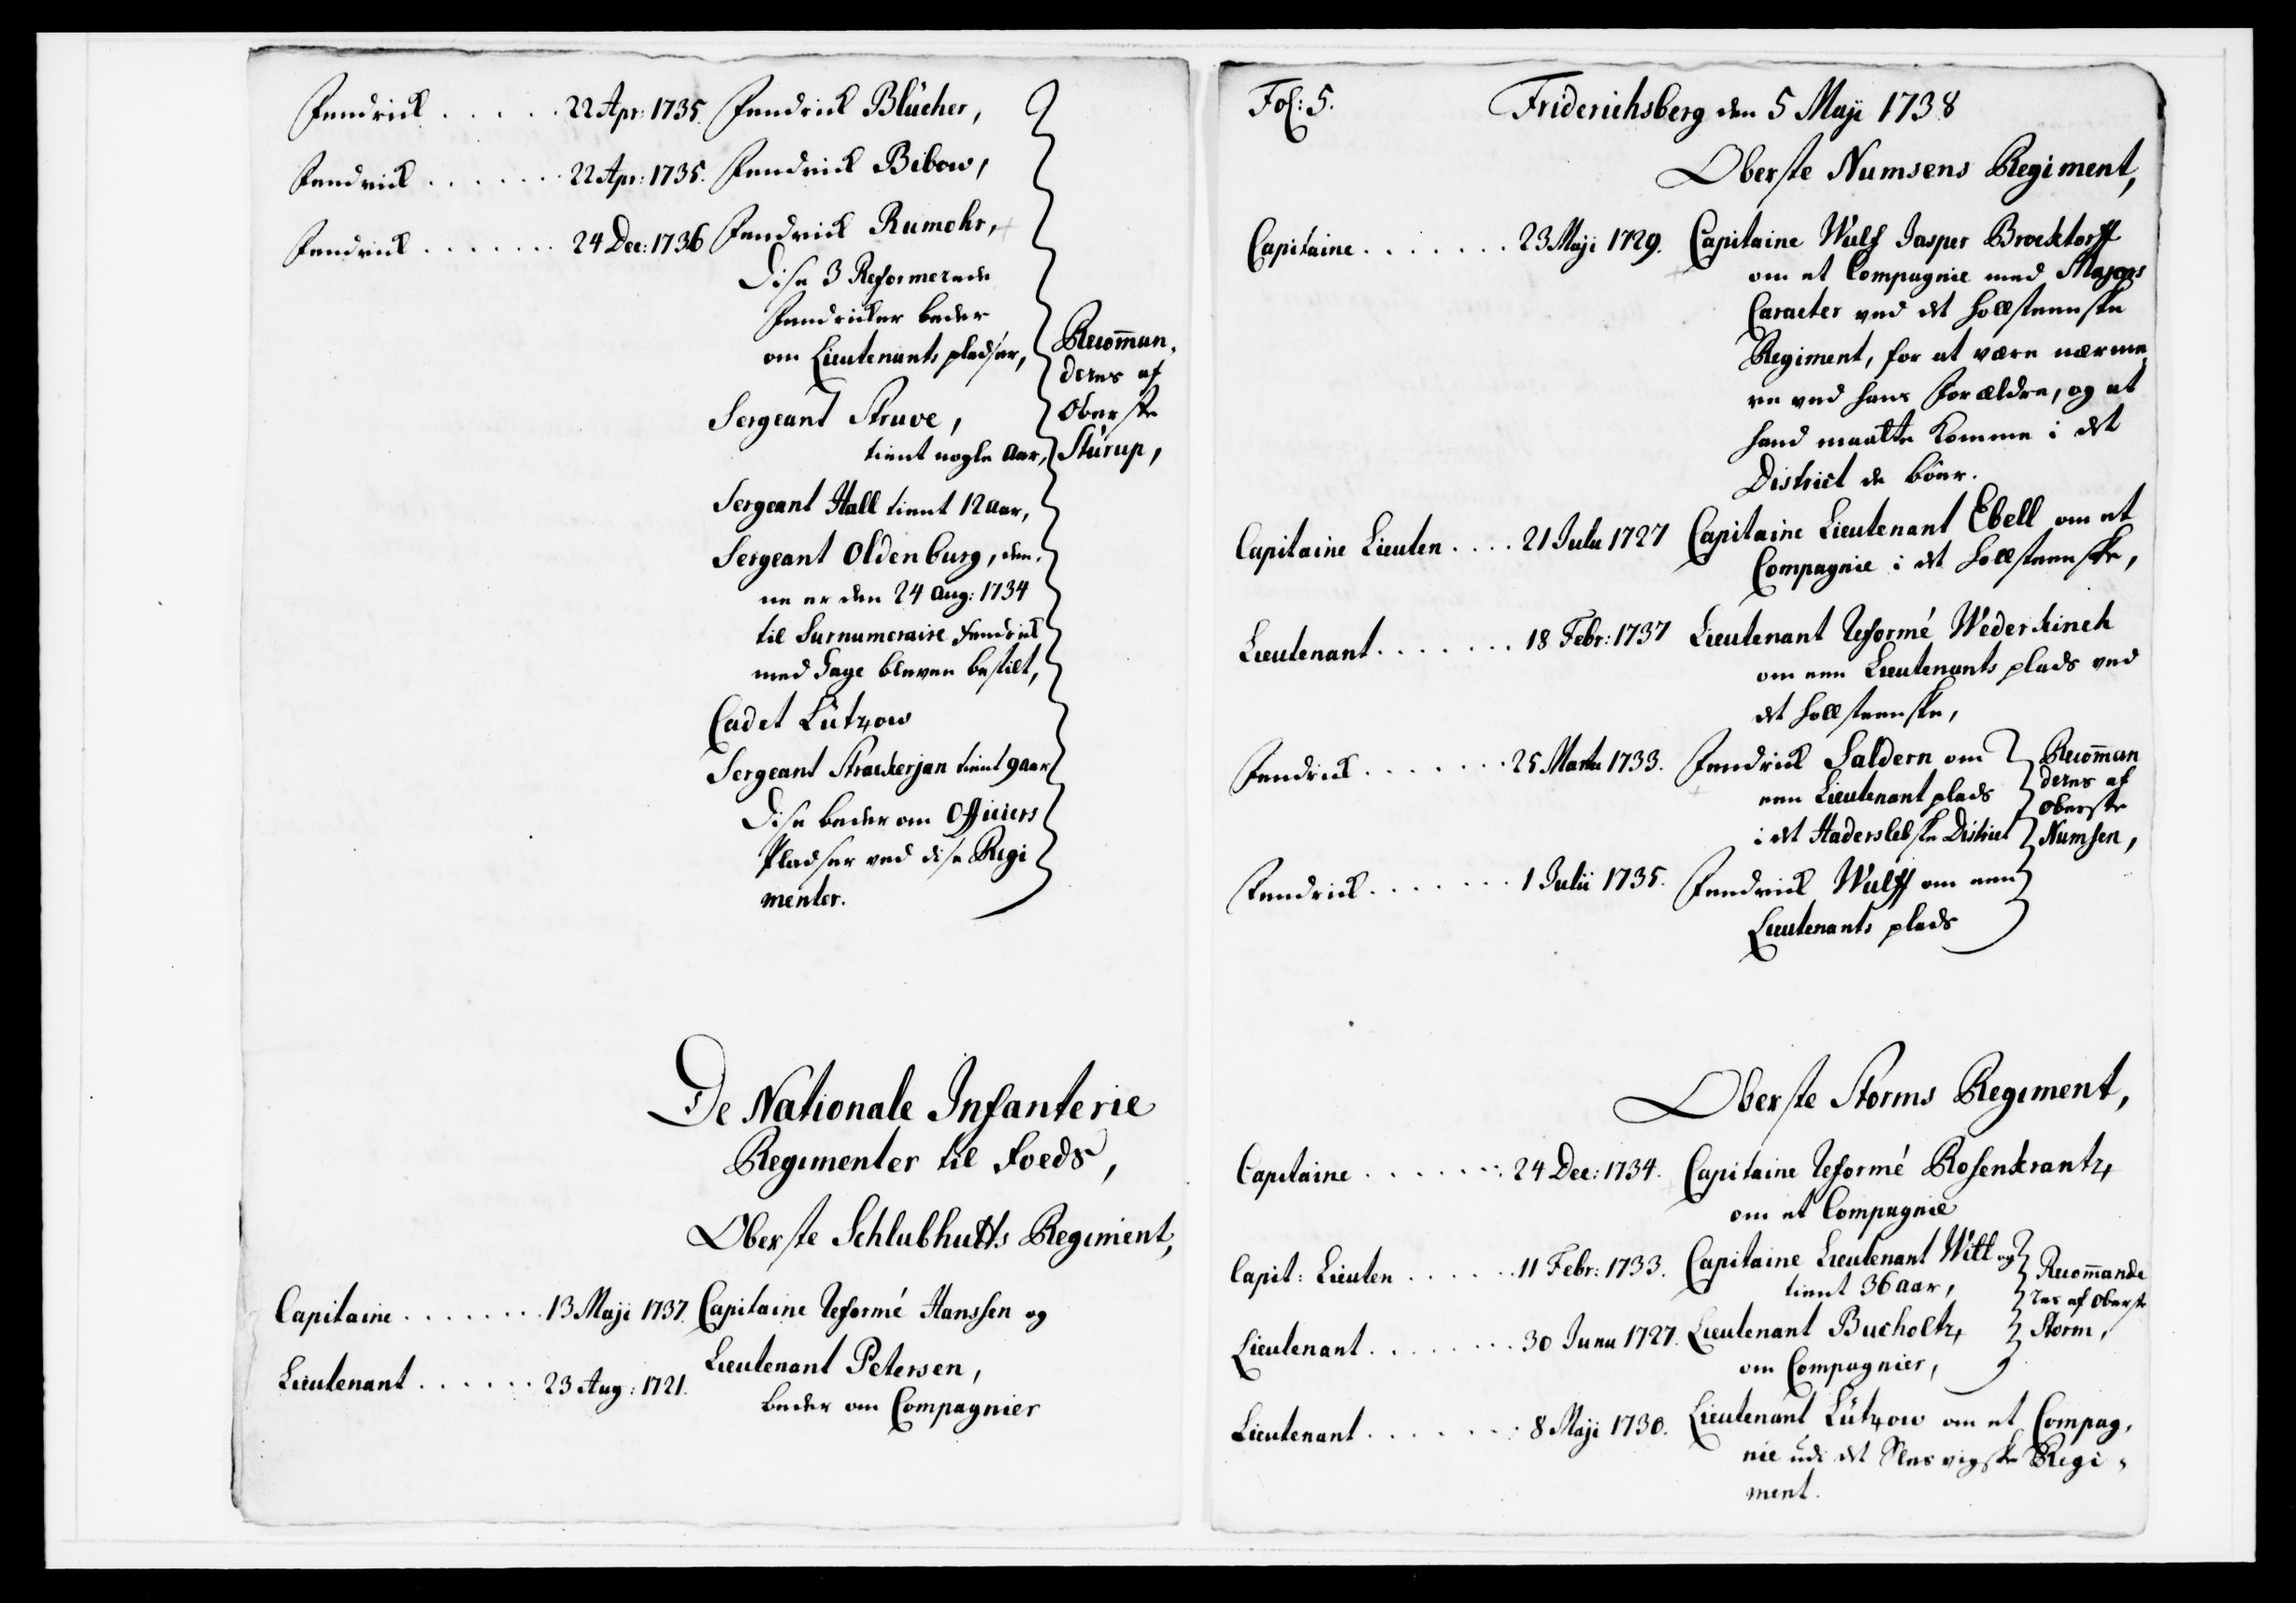 Fendrick . . . . . 22 Apr: 1735. Fendrick Blücher,
Fendrick . . . . . . 22 Apr: 1735. Fendrick Bibow,
Fendrick . . . . . . 24 Dec: 1736 Fendrick Rumohr,
Dise 3 Reformerede
Fendricker beder
om Lieutenants pladser,
Sergeant Struve,
tient nogle Aar,
Recom̄an,
deres af
Oberste
Sturup,
Sergeant Hall tient 12 Aar,
Sergeant Oldenburg, den,
ne er den 24 Aug: 1734
til Surnumeraire Fendrick
med Gage bleven bestilt,
Cadet Lützow
Sergeant Strackerjan tient 9 aar
Dise beder om Officiers
Pladser ved dise Regi
menter.
De Nationale Infanterie
Regimenter til Foeds,
Oberste Schlubhutts Regiment,
Capitaine . . . . . . . 13 Maji 1737. Capitaine Reformé Hanssen og
Lieutenant . . . . . . 23 Aug: 1721. Lieutenant Petersen,
beder om Compagnier
Fol: 5. Friderichsberg den 5 Maji 1738
Oberste Numsens Regiment,
Capitaine . . . . . . . 23 Maji 1729. Capitaine Wulf Jasper Brocktorff
om et Compagnie med Majors
Caracter ved det Hollsteenske
Regiment, for at være nærme,
re ved hans Forældre, og at
hand maatte komme i det
District de boer.
Capitaine Lieuten . . . . 21 Julii 1727 Capitaine Lieutenant Ebell om et
Compagnie i det Hollsteenske,
Lieutenant . . . . . . . 18 Febr: 1737 Lieutenant Reformé Wederkinch
om een Lieutenants plads ved
det Hollsteenske,
Fendrick . . . . . . . 25 Martii 1733. Fendrick Saldern om
een Lieutenant plads
i det Haderslebske District
Recom̄an
deres af
Oberste
Numsen,
Fendrick . . . . . . . 1 Julii 1735. Fendrick Wulff om een
Lieutenants plads
Oberste Storms Regiment,
Capitaine . . . . . . . 24 Dec: 1734. Capitaine Reformé Rosenkrantz
om et Compagnie
Capit: Lieuten . . . . . . 11 Febr: 1733. Capitaine Lieutenant Witt og
tient 36 aar,
Recom̄ande
res af Oberste
Storm,
Lieutenant . . . . . . . 30 Junii 1727. Lieutenant Bucholtz
om Compagnier,
Lieutenant . . . . . . . 8 Maji 1730. Lieutenant Lützow om et Compag,
nie udi det Slesvigske Regi,
ment.